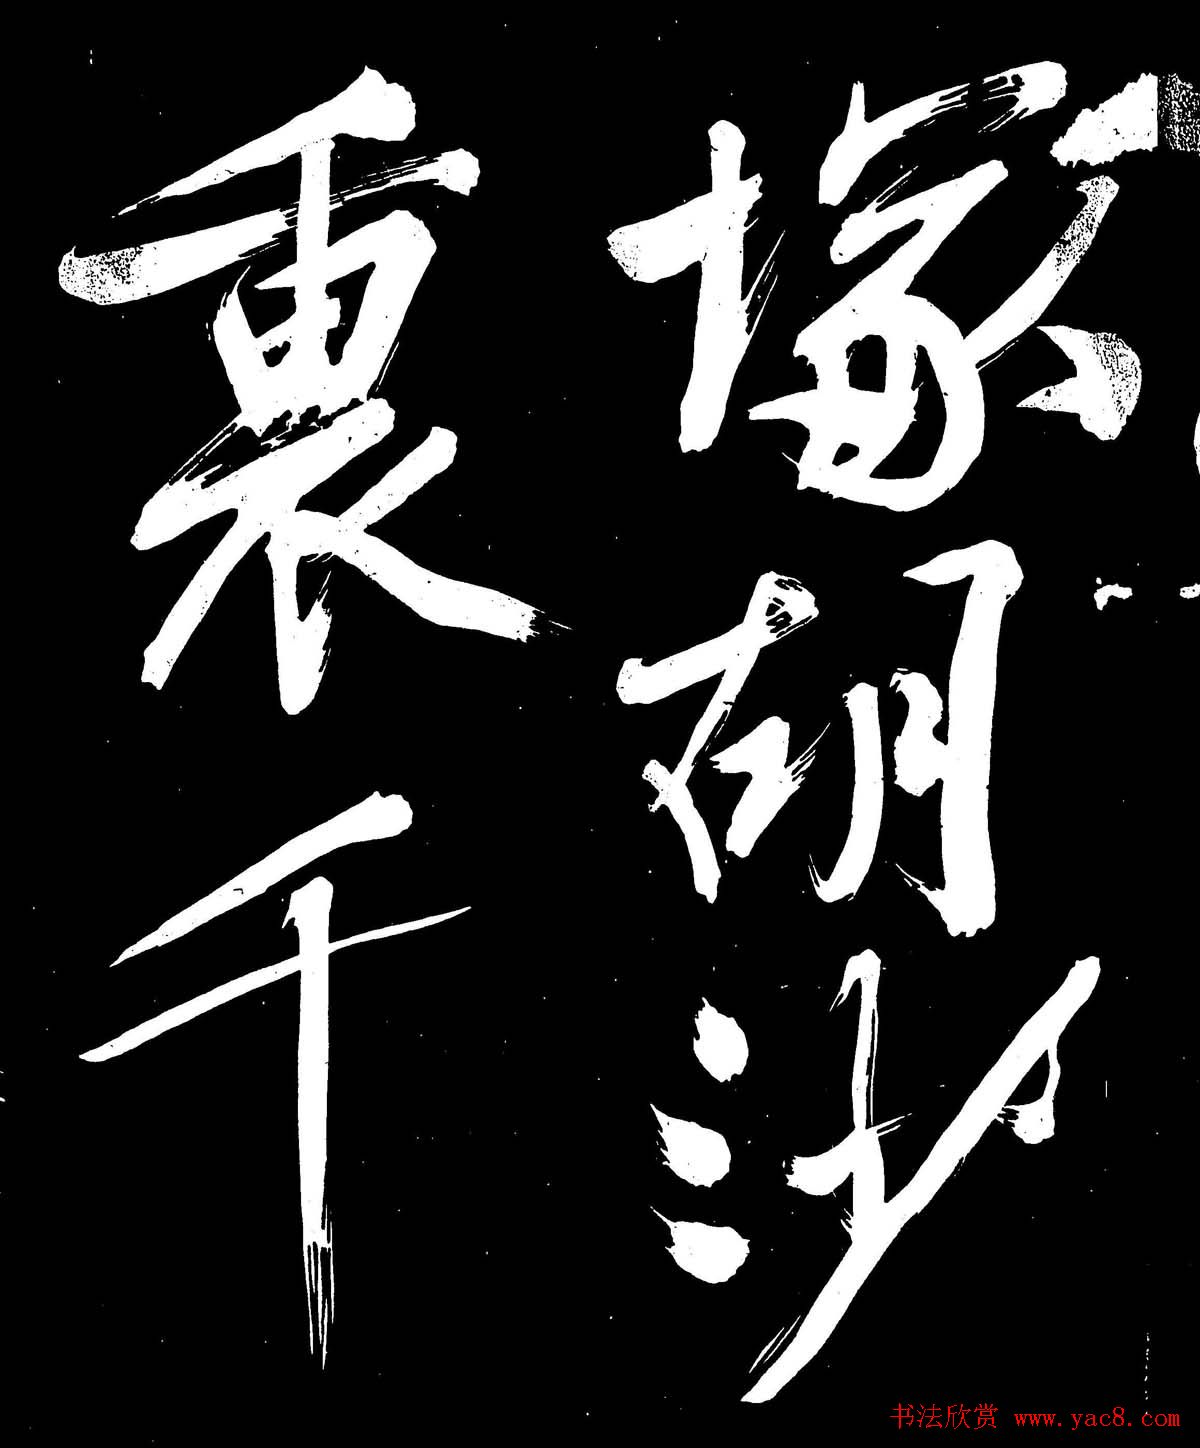 塚胡沙
裏千
书法欣赏 www.yac8.com